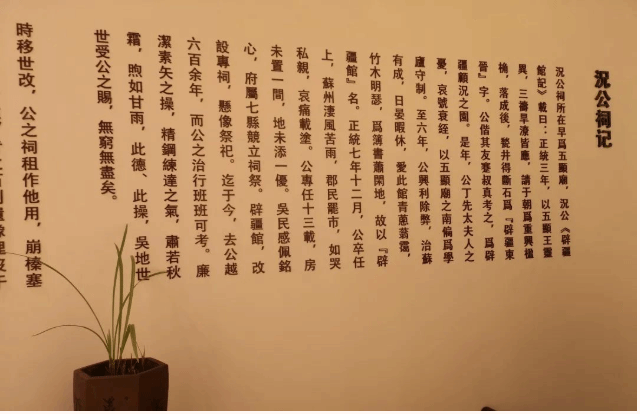 況公祠记
況公祠所在早爲五顯廟，況公《辟疆
館記》載曰：正統三年，以五顯王靈
異，三禱旱潦皆應，請于朝爲重興楹
桷，落成後，甃井得斷石爲『辟疆東
晉』字。公偕其友蹇叔真考之，爲辟
疆顧況之園。是年，公丁先太夫人之
憂，哀號衰絰，以五顯廟之南偏爲學
廬守制。至六年，公興利除弊，治蘇
有成，日晏暇休，愛此館青蔥蓊靄，
竹木明瑟，爲簿書蕭閑地，故以『辟
疆館』名。正統七年十二月，公卒任
上，蘇州淒風苦雨，郡民罷市，如哭
私親，哀痛載塗。公專任十三載，房
未置一間，地未添一優。吳民感佩銘
心，府屬七縣競立祠祭。辟疆館，改
設專祠，懸像祭祀。迄于今，去公越
六百余年，而公之治行班班可考。廉
潔素矢之操，精鋼練達之氣，肅若秋
霜，煦如甘雨，此德、此操，吳地世
世受公之賜，無窮無盡矣。
時移世改，公之祠租作他用，崩榛塞